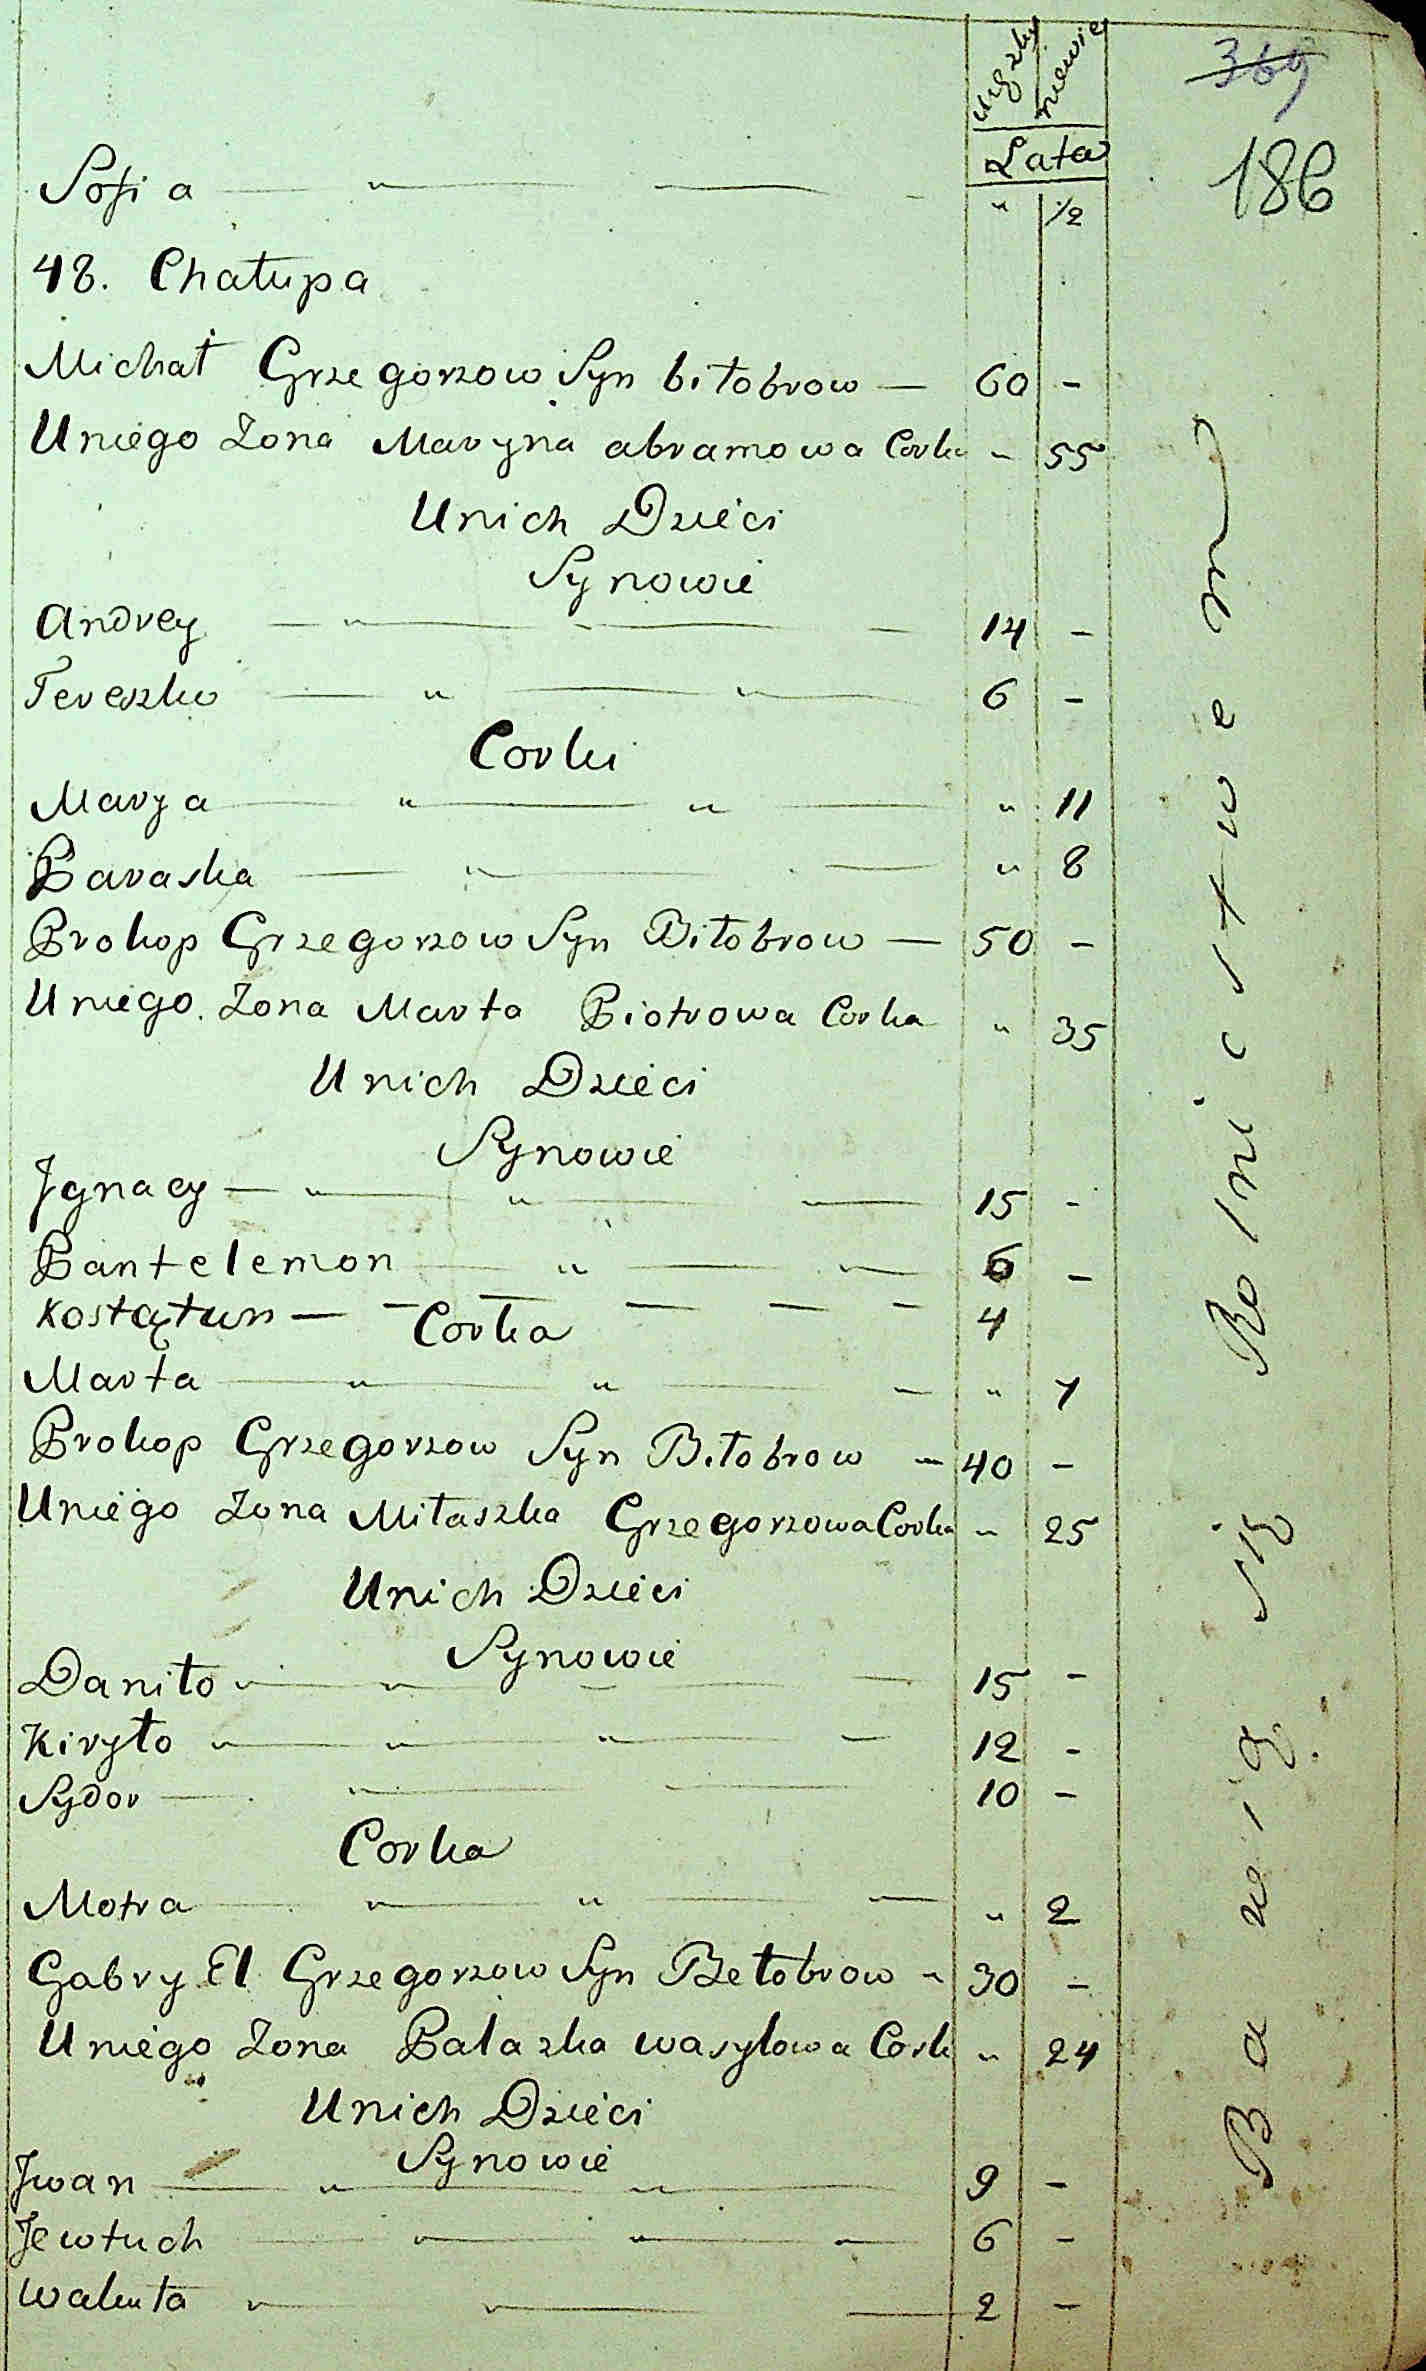 męzkie niewie
369
Lata
186
Sofia — " — - " 1/2
48. Chałupa
Michał Grzegorzow Syn biłobrow — 60 -
Uniego Zona Maryna abramowa Corka " 55
Unich Dzieci
Synowie
Andrey — " — - — 14 -
Tereszko — " — " — 6 -
Corki
Marya — " — " — " 11
Paraska — " — — " 8
Prokop Grzegorzow Syn Biłobrow — 50 -
Uniego Zona Marta Piotrowa Corka " 35
Unich Dzieci
Synowie
Jgnacy — " — " — 15 -
Pantelemon — " — " — 6 -
Kostątun — - — — — - 4
Corka
Marta — " — " — " 7
Prokop Grzegorzow Syn Biłobrow — 40 -
Uniego Zona Miłaszka Grzegorzowa Corka " 25
Unich Dzieci
Synowie
Daniło " — " — - — 15 -
Kiryło " — " — " — 12 -
Sydor — " — — 10 -
Corka
Motra — " — " — " 2
GabryEl Grzegorzow Syn Bełobrow " 30 -
Uniego Zona Palazka wasylowa Cork " 24
Unich Dzieci
Synowie
Jwan — " — " — 9 -
Jewtuch — " — " — 6 -
Bawią się Rolnictwem